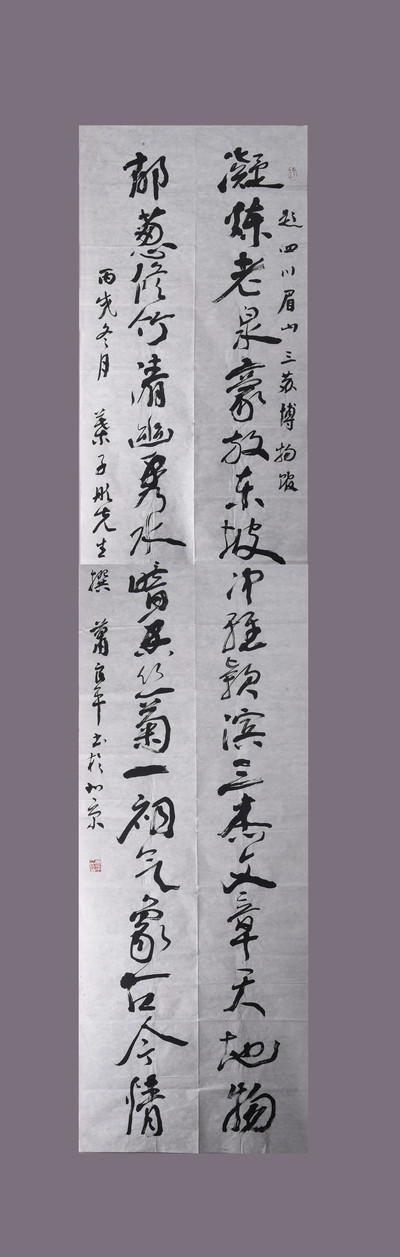 题四川眉山三苏博物馆
凝炼老泉豪放东坡冲雅颖滨三杰文章天地物
郁葱修竹清幽秀水暗香丛菊一祠气象古今情
丙戌冬月 葉子彤先生撰 萧平书于北京